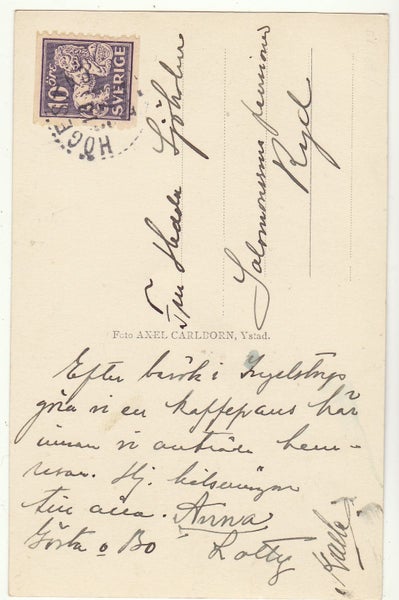 10 ÖRE
SVERIGE
HÖGE
Fru Hedda Sjöholm
Salomonssons pensionat
Ryd
Foto AXEL CARLBORN, Ystad.
Efter besök i Ingelstorp
göra vi en kaffepaus här
innan vi anträda hem-
resan. Hj. hälsningar
till alla. Anna
Gösta o Bo Lotty
Kalle